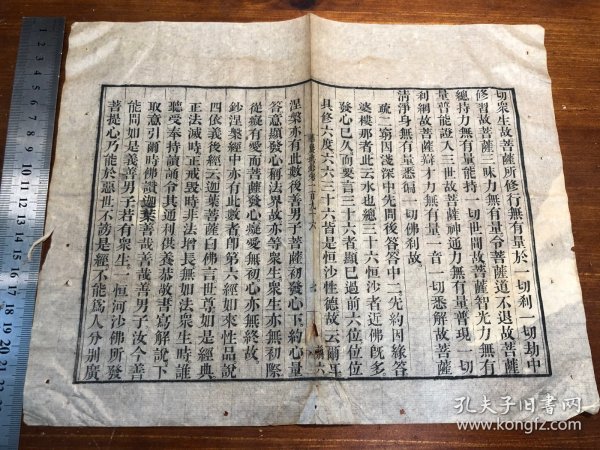 切衆生故菩薩所修行無有量於一切刹一切劫中
修習故菩薩三昧力無有量令菩薩道不退故菩薩
總持力無有量能持一切世間故菩薩智光力無有
量普能證入三世故菩薩神通力無有量普現一切
刹網故菩薩辯才力無有量一音一切悉解故菩薩
清淨身無有量悉徧一切佛刹故
疏二窮因淺深中先問後答答中二先約因緣答
婆樓那者此云水也總三十六恒沙者近佛旣多
發心已久而要言三十六者顯已過前六位位位
具修六度六六三十六皆是恒沙性德故
涅槃亦有此數後善男子菩薩初發心下約心量
答意顯發心稱法界故亦等衆生衆生亦無初際
從癡有愛而菩薩發心癡愛無初心亦無終故
鈔涅槃經中亦有此數者即第六經如來性品說
四依義後經云迦葉菩薩白佛言世尊如是經典
正法滅時正戒毁時非法增長無如法衆生時誰
聽受奉持讀誦令其通利供養恭敬書寫解說下
取意引爾時佛讚迦葉善哉善哉善男子汝今善
能問如是義善男子若有衆生一恒河沙佛所發
菩提心乃能於惡世不謗是經不能爲人分別廣
孔夫子旧书网